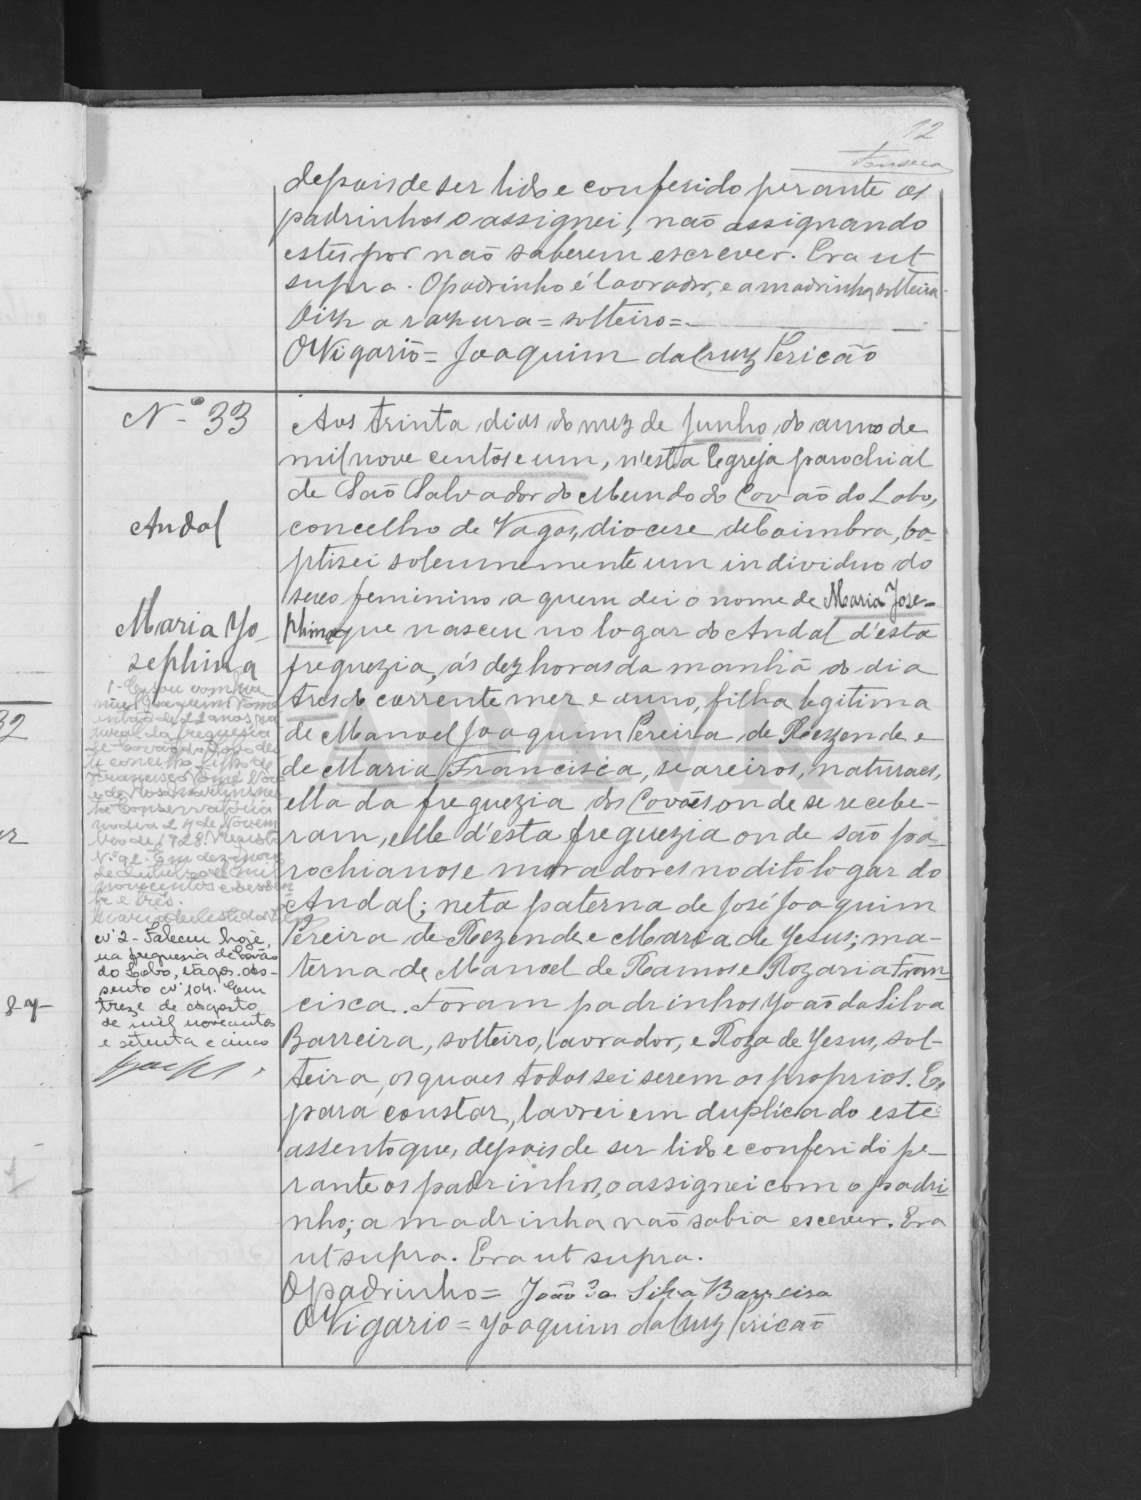 12
Fonseca
depois de ser lido e conferido perante os
padrinhos o assignei, não assignando
estes por não saberem escrever. Era ut
supra. O padrinho é lavrador, e a madrinha solteira.
Diz a razura = solteiro =
O Vigario = Joaquim da Cruz Pericão
Nº 33
Andal
Maria Jo-
sephina
Aos trinta dias do mez de Junho do anno de
mil nove centos e um, n'esta Egreja parochial
de São Salvador do Mundo do Covão do Lobo,
concelho de Vagos, diocese de Coimbra, ba-
ptisei solemnemente um individuo do
sexo feminino a quem dei o nome de Maria Jose-
phina que nasceu no logar do Andal d'esta
freguezia, ás dez horas da manhã do dia
tres do corrente mez e anno, filha legitima
de Manoel Joaquim Pereira de Rezende e
de Maria Francisca, seareiros, naturaes,
ella da freguezia dos Covões onde se recebe-
ram, elle d'esta freguezia onde são pa-
rochianos e moradores no dito logar do
Andal; neta paterna de José Joaquim
Pereira de Rezende e Maria de Jesus; ma-
terna de Manoel de Ramos e Rozaria Fran-
cisca. Foram padrinhos João da Silva
Barreira, solteiro, lavrador, e Roza de Jesus, sol-
teira, os quaes todos sei serem os proprios. E
para constar, lavrei em duplicado este
assento que, depois de ser lido e conferido pe-
rante os padrinhos, o assignei com o padri-
nho; a madrinha não sabia escever. Era
ut supra. Era ut supra.
O padrinho = João da Silva Barreira
O Vigario = Joaquim da Cruz Pericão
1- Casou com
Joaquim Tomé
de 22 anos, na
tural da freguesia
de Covão do Lobo des
te concelho, filho de
Francisco Tomé
Conservatória
no dia 24 de Novem
bro de 1928. Registo
Nº 92. Em dezanove
de mil
novecentos e sessen
ta e três.
Nº 2 - Faleceu hoje,
na freguesia de Covão
do Lobo, Vagos. As-
sento nº 104. Em
treze de agosto
de mil novecentos
e setenta e cinco
32
87-
ADAVR